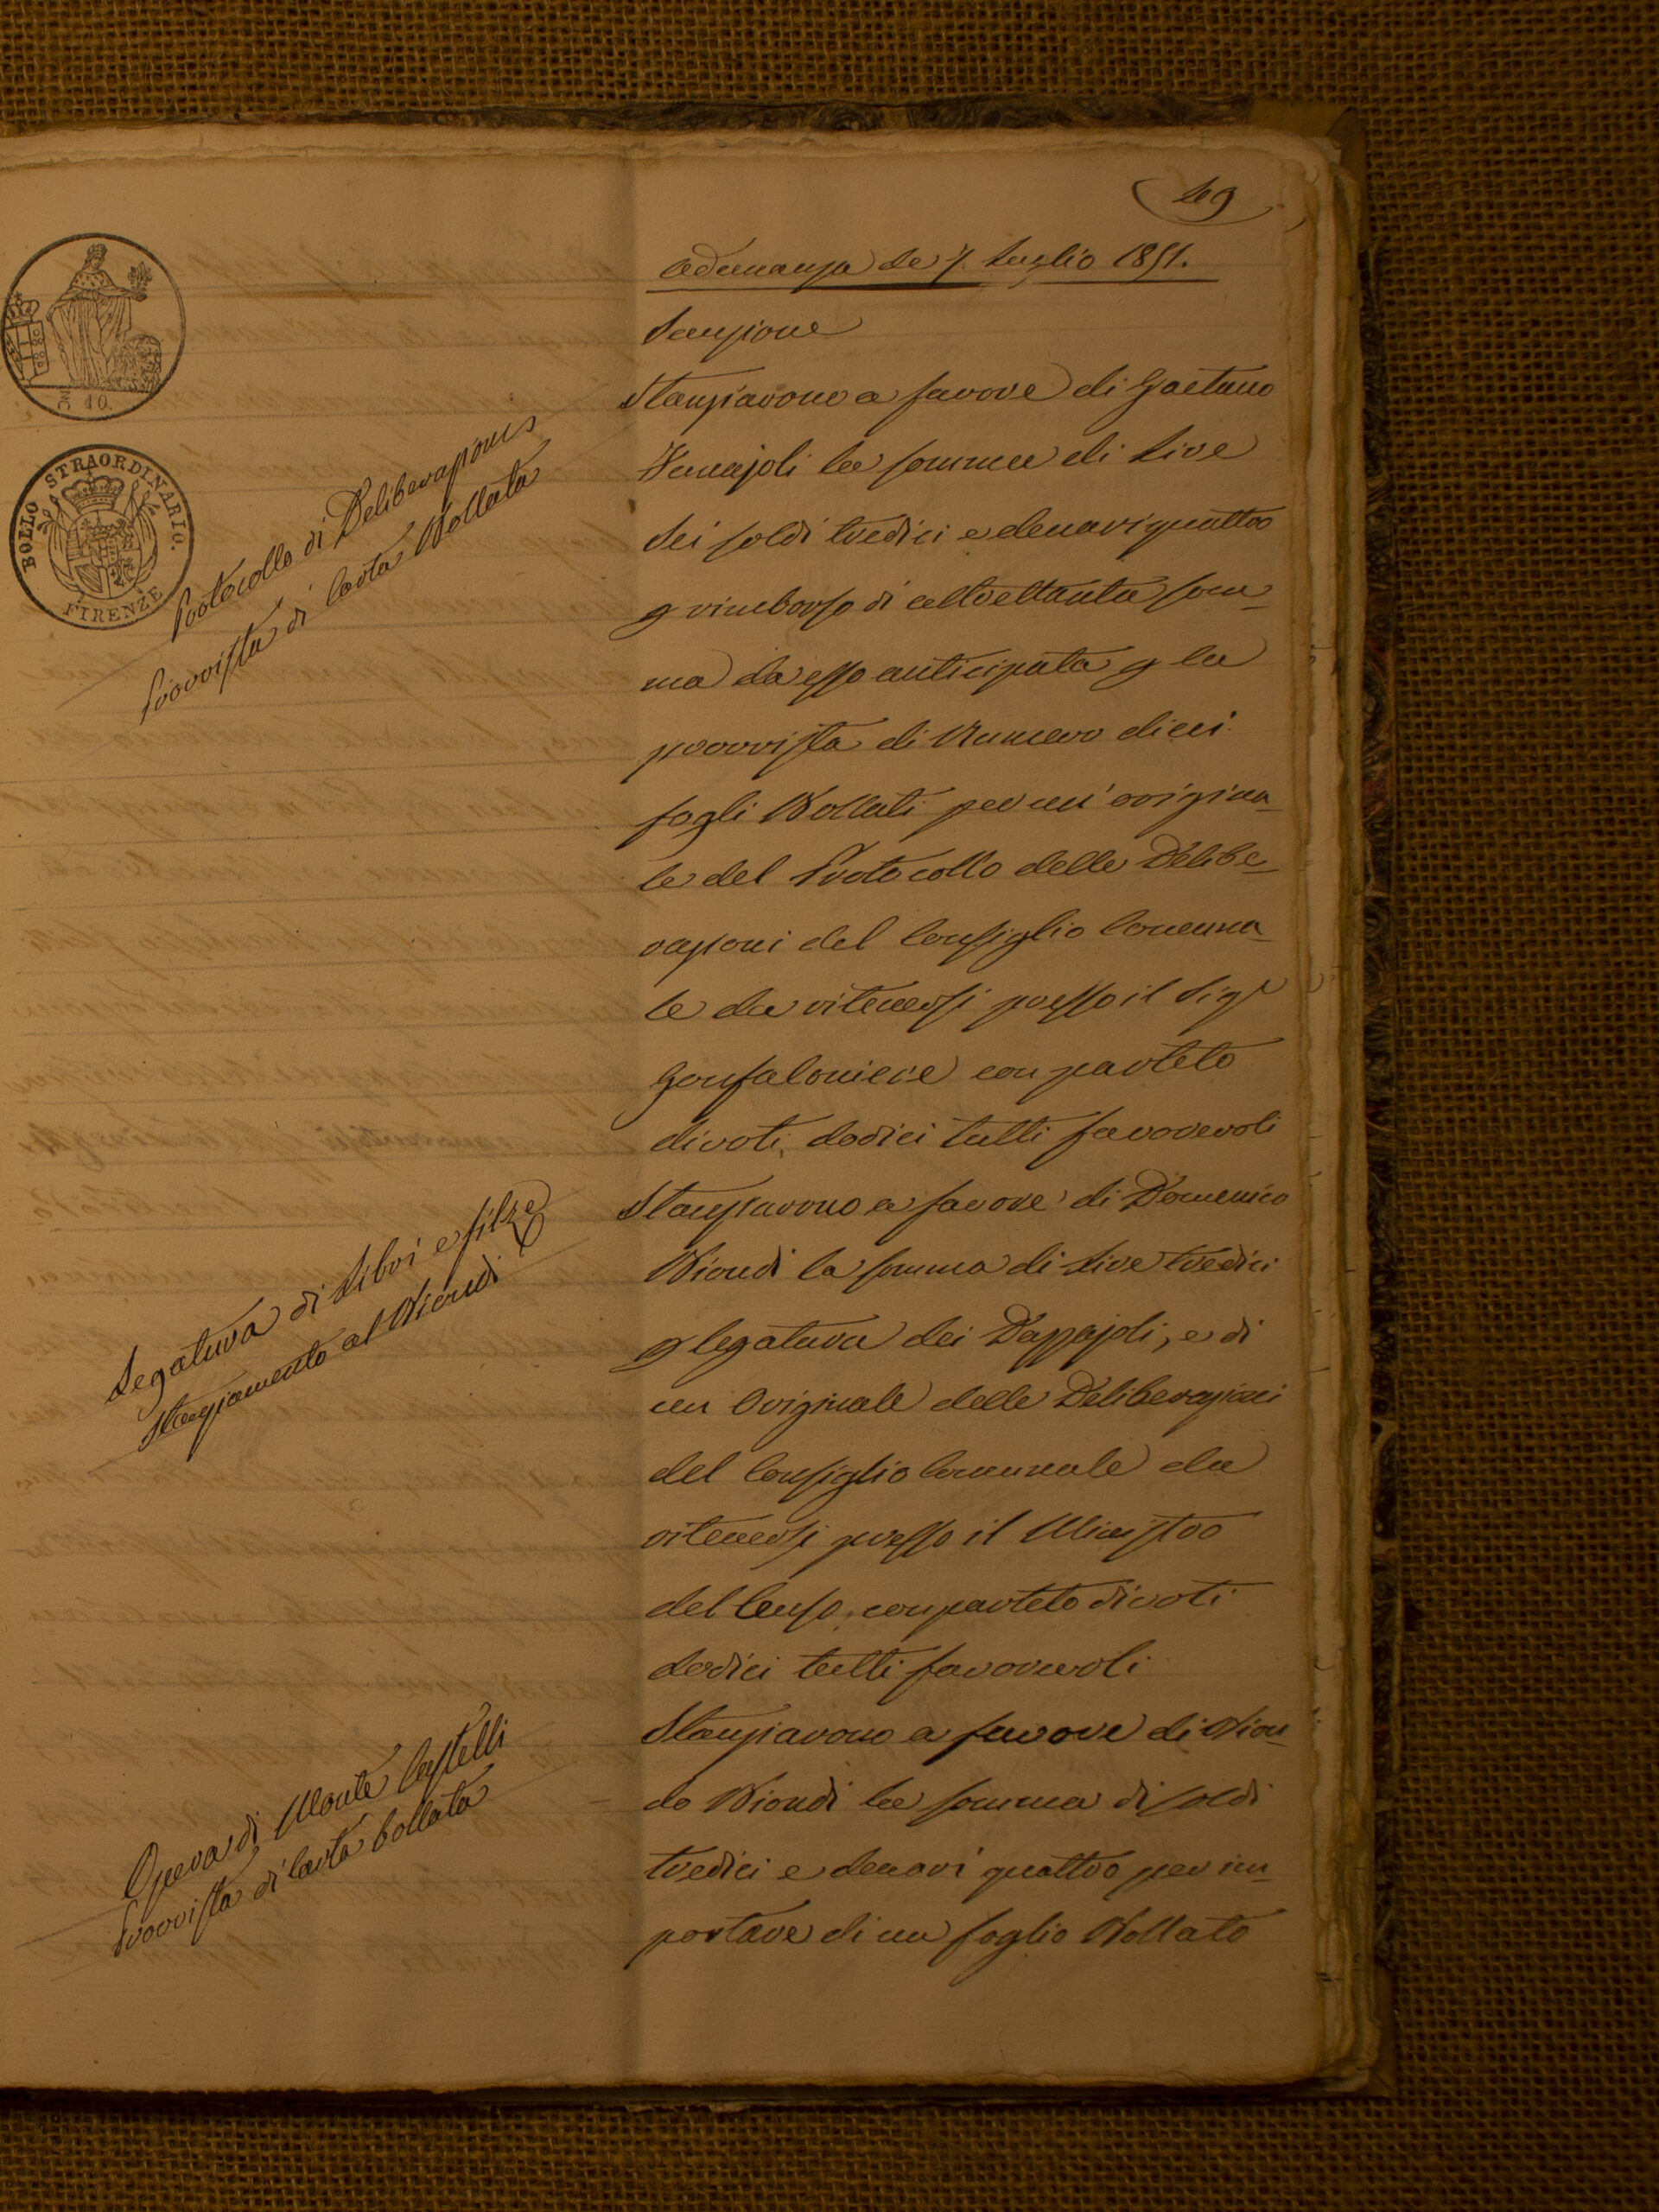 49
Adunanza de 7. Luglio 1851.
Sanzione
Stanziarono a favore di Gaetano
la somma di Lire
Sei soldi tredici e denari quattro
p rimborso di altrettanta som=
ma da esso anticipata p la
provvista di Numero dieci
fogli Bollati per un' origina=
le del Protocollo delle Delibe=
razioni del Consiglio Comuna=
le da ritenersi presso il Sigr
Gonfaloniere con partito
di voti, dodici tutti favorevoli
Stanziarono a favore di Domenico
Biondi la somma di Lire tredici
p legatura dei Dazzajoli, e di
un Originale delle Deliberazioni
del Consiglio Comunale da
ritenersi presso il Ministro
del Censo, con partito di voti
dodici tutti favorevoli
Stanziarono a favore di
Biondi la somma di soldi
tredici e denari quattro per im=
portare di un foglio Bollato
10.
BOLLO STRAORDINARIO.
FIRENZE
Protocollo di Deliberazioni
Provvista di Carta Bollata
Legatura di Libri e filze
Stanziamento al Biondi
Opera di Monte Castelli
Provvista di Carta bollata